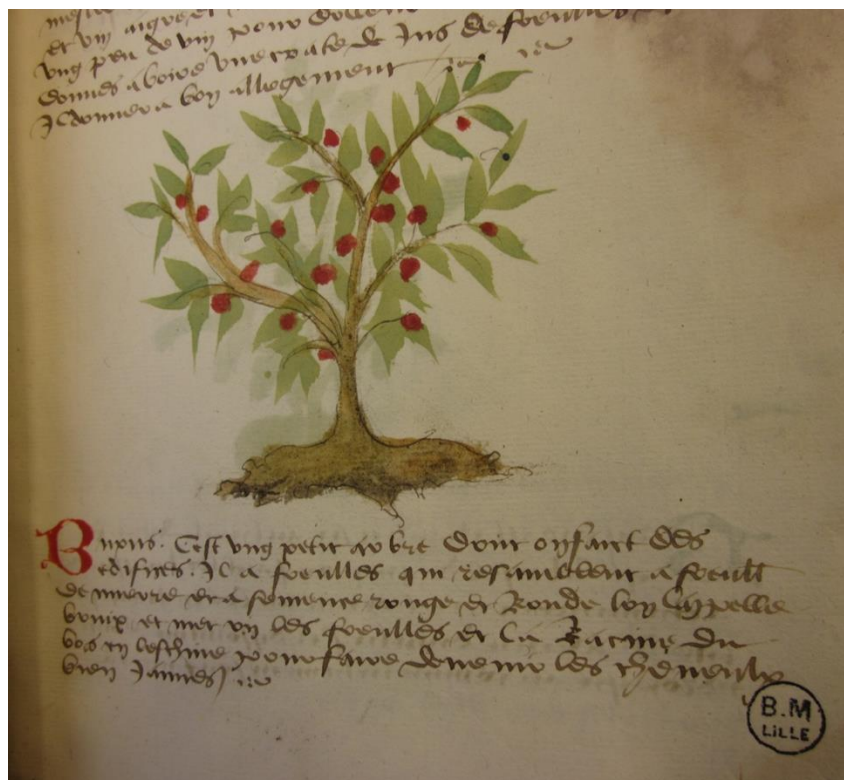 et ung
ung peu de vin pour
donnes a boire une de Jus de foeulles
Il donnera bon allegement
Buxus. Cest ung petit arbre dont on faict des
edifices. Il a foeulles qui resamblent a foeull
de meurre et a semence rouge et Ronde lon lappelle
bouix et met on les foeulles et la Racine du
bos en leschive pour faire devenir les cheveulx
bien Jaunes
B.M
LILLE